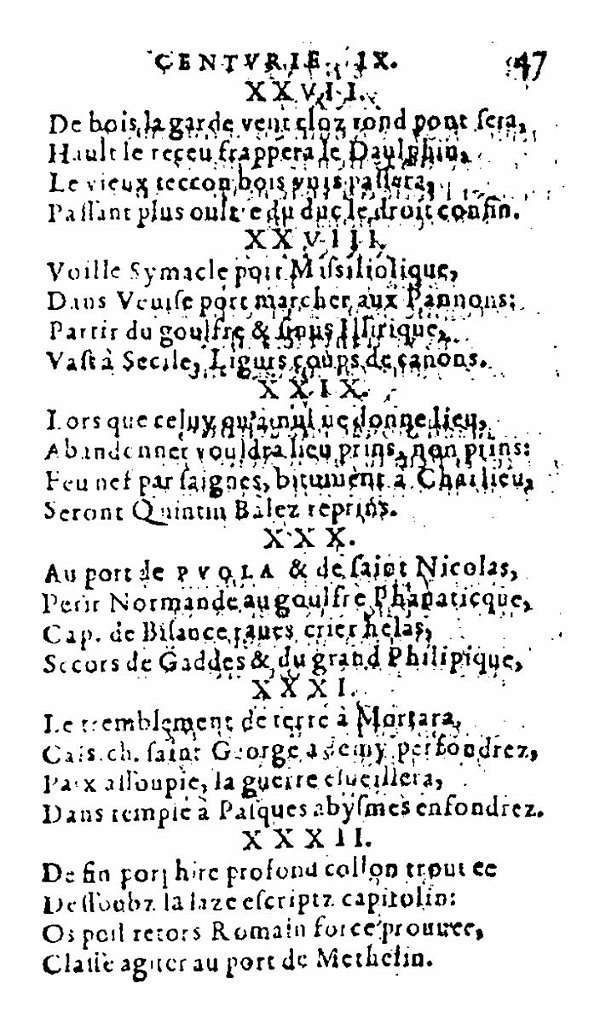 CENTVRIE IX. 47
XXVII.
De bois la garde vent cloz rond pont sera,
Hault le receu frappera le Daulphin,
Le vieux teccon bois vnis passera,
Passant plus oultre du duc le droit confin.
XXVIII.
Voille Symacle port Massiliolique,
Dans Venise port marcher aux Pannons:
Partir du goulfre & sinus Illirique,
Vast à Secile, Ligurs coups de canons.
XXIX.
Lors que celuy qu'à nul ne donne lieu,
Abandonner vouldra lieu prins, non prins:
Feu nef par saignes, bitument à Charlieu,
Seront Quintin Balez reprins.
XXX.
Au port de PVOLA & de saint Nicolas,
Perir Normande au goulfre Phanaticque,
Cap. de Bisance raues crier helas,
Secors de Gaddes & du grand Philipique,
XXXI.
Le tremblement de terre à Mortara,
Cais. ch. saint George a demy perfondrez,
Paix assoupie, la guerre esueillera,
Dans temple à Pasques abysmes enfondrez.
XXXII.
De fin porphire profond collon trouuee
Dessoubz la laze escriptz capitolin:
Os poil retors Romain force prouuee,
Classe agiter au port de Methelin.